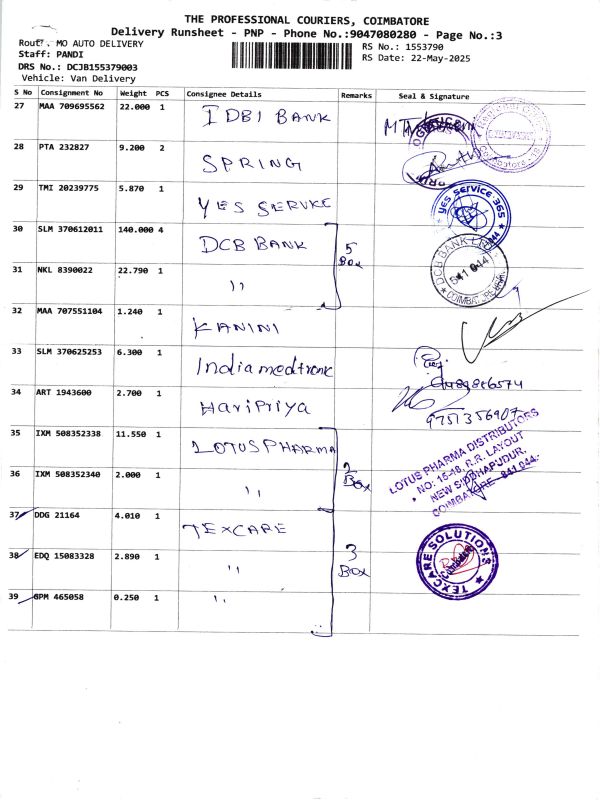 THE PROFESSIONAL COURIERS, COIMBATORE
Delivery Runsheet - PNP - Phone No.:9047080280 - Page No.:3
Route: MO AUTO DELIVERY RS No.: 1553790
Staff: PANDI RS Date: 22-May-2025
DRS No.: DCJB155379003
Vehicle: Van Delivery
S No Consignment No Weight PCS Consignee Details Remarks Seal & Signature
27 MAA 709695562 22.000 1 IDBI BANK
28 PTA 232827 9.200 2 SPRING
29 TMI 20239775 5.870 1 YES SERVKE YES SERVICE 365
30 SLM 370612011 140.000 4 DCB BANK 5 Box DCB BANK LTD 541 044 COIMBATORE
31 NKL 8390022 22.790 1 "
32 MAA 707551104 1.240 1 KANINI
33 SLM 370625253 6.300 1 India medtronc
34 ART 1943600 2.700 1 HariPriya 9751356907
35 IXM 508352338 11.550 1 LOTUS PHARMA 2 Box
LOTUS PHARMA DISTRIBUTORS
NO: 15-18, R.R. LAYOUT
NEW SIDDHAPUDUR,
COIMBATORE - 641 044.
36 IXM 508352340 2.000 1 "
37 DDG 21164 4.010 1 TEXCARE 3 Box TEXCARE SOLUTIONS
38 EDQ 15083328 2.890 1 "
39 GPM 465058 0.250 1 "